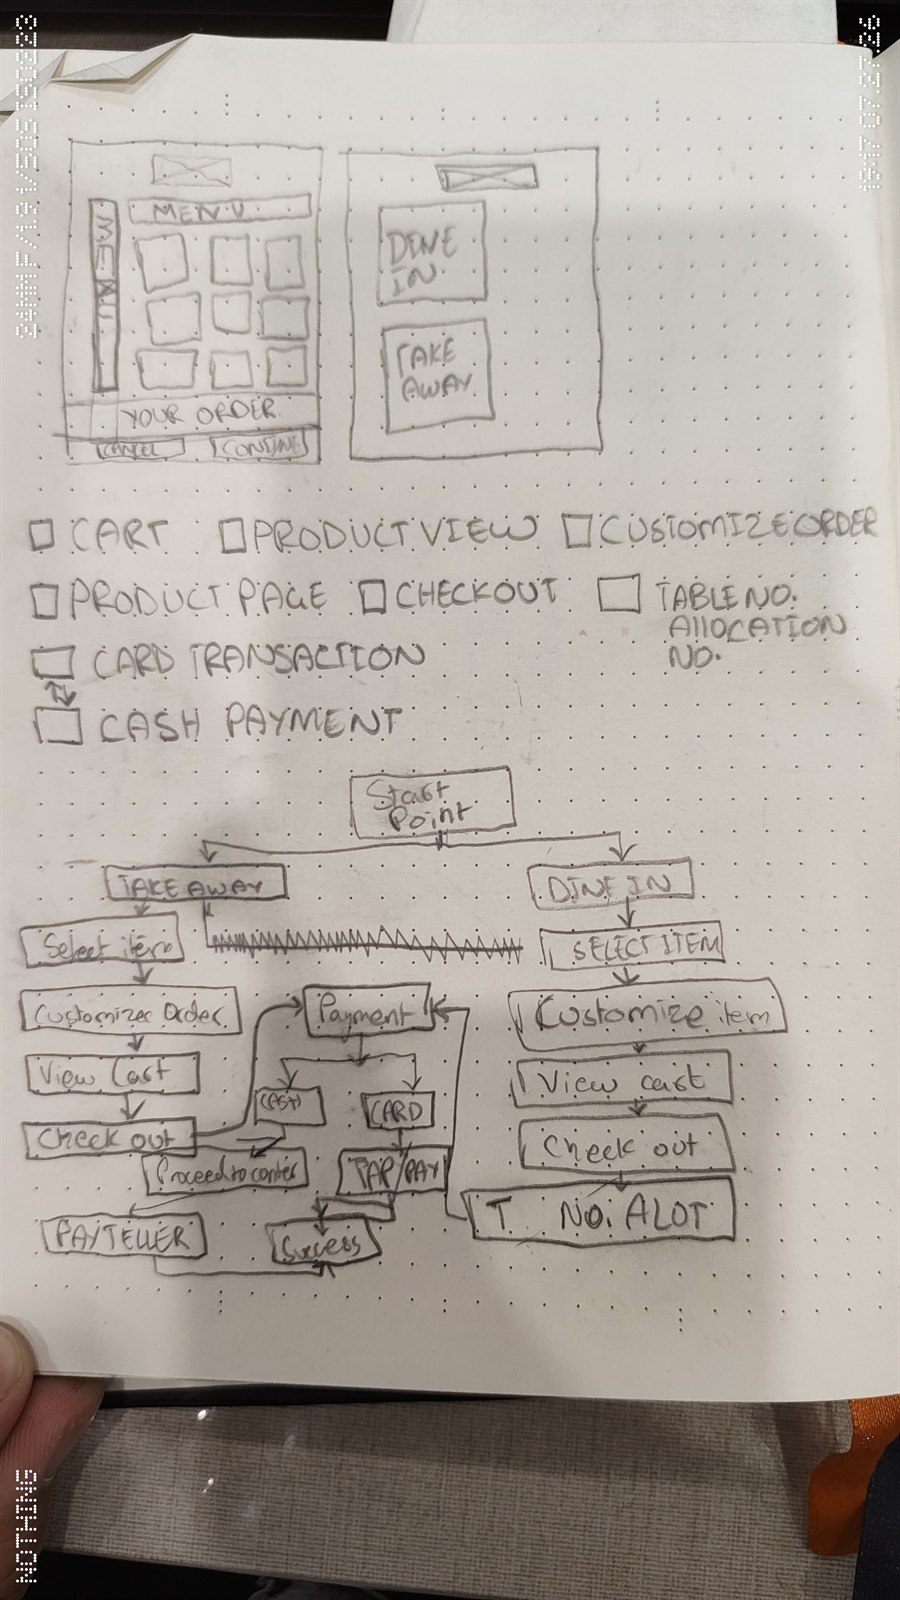 MENU
MENU
YOUR ORDER
CANCEL
DINE
IN
TAKE
AWAY
CART
PRODUCT VIEW
CUSTOMIZE ORDER
PRODUCT PAGE
CHECKOUT
TABLE NO.
AllOCATION
NO.
CARD TRANSACTION
CASH PAYMENT
Start
Point
TAKE AWAY
DINE IN
Select item
SELECT ITEM
Customizer Order
Payment
Customize item
View Cart
CASH
CARD
View cart
Check out
Check out
Proceed to conter
TAP/PAY
T NO. ALOT
PAY TELLER
Success
24MM F/1.9 1/50S ISO323
19:47 07.27.26
NOTHING